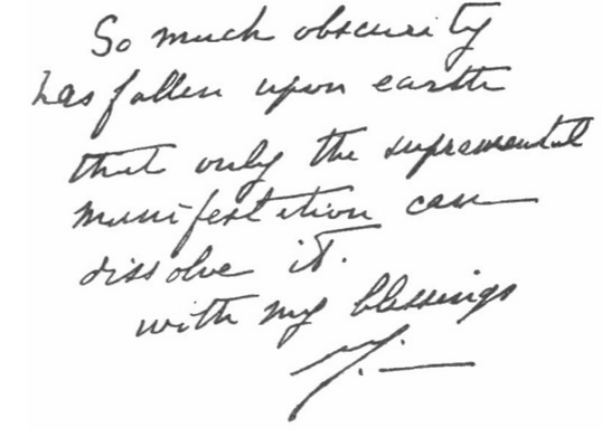 So much obscurity
has fallen upon earth
that only the supramental
manifestation can
dissolve it.
with my blessings